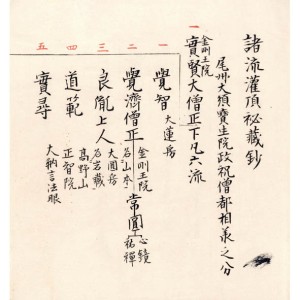 諸流灌頂祕藏鈔
尾州大須寶生院政祝僧都相承之分
一
金剛王院
實賢大僧正下凡六流
一
覺智 大蓮房
二
覺濟僧正 金剛王院 名山本 常圓 心鏡 祐禪
三
良胤上人 大圓房 名岩藏
四
道範 高野山 正智院
五
實尋 大納言法眼